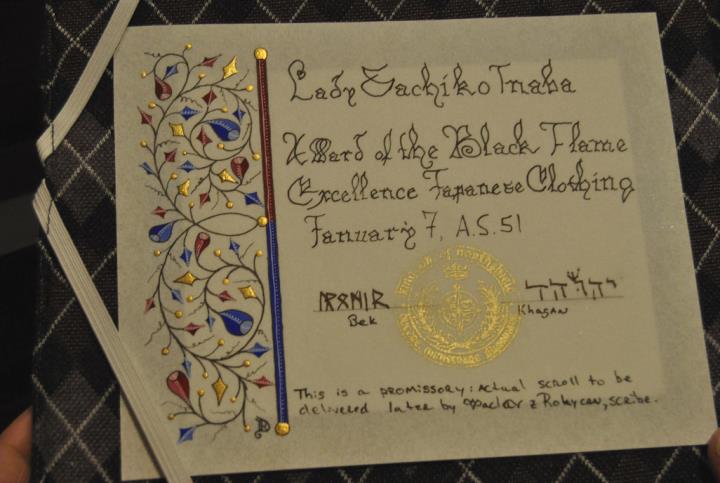 Lady Sachiko Inaba
Award of the Black Flame
Excellence Japanese Clothing
January 7, A.S. 51
Bek
Khagan
This is a promissory: Actual scroll to be
delivered later by z Rokycan, scribe.